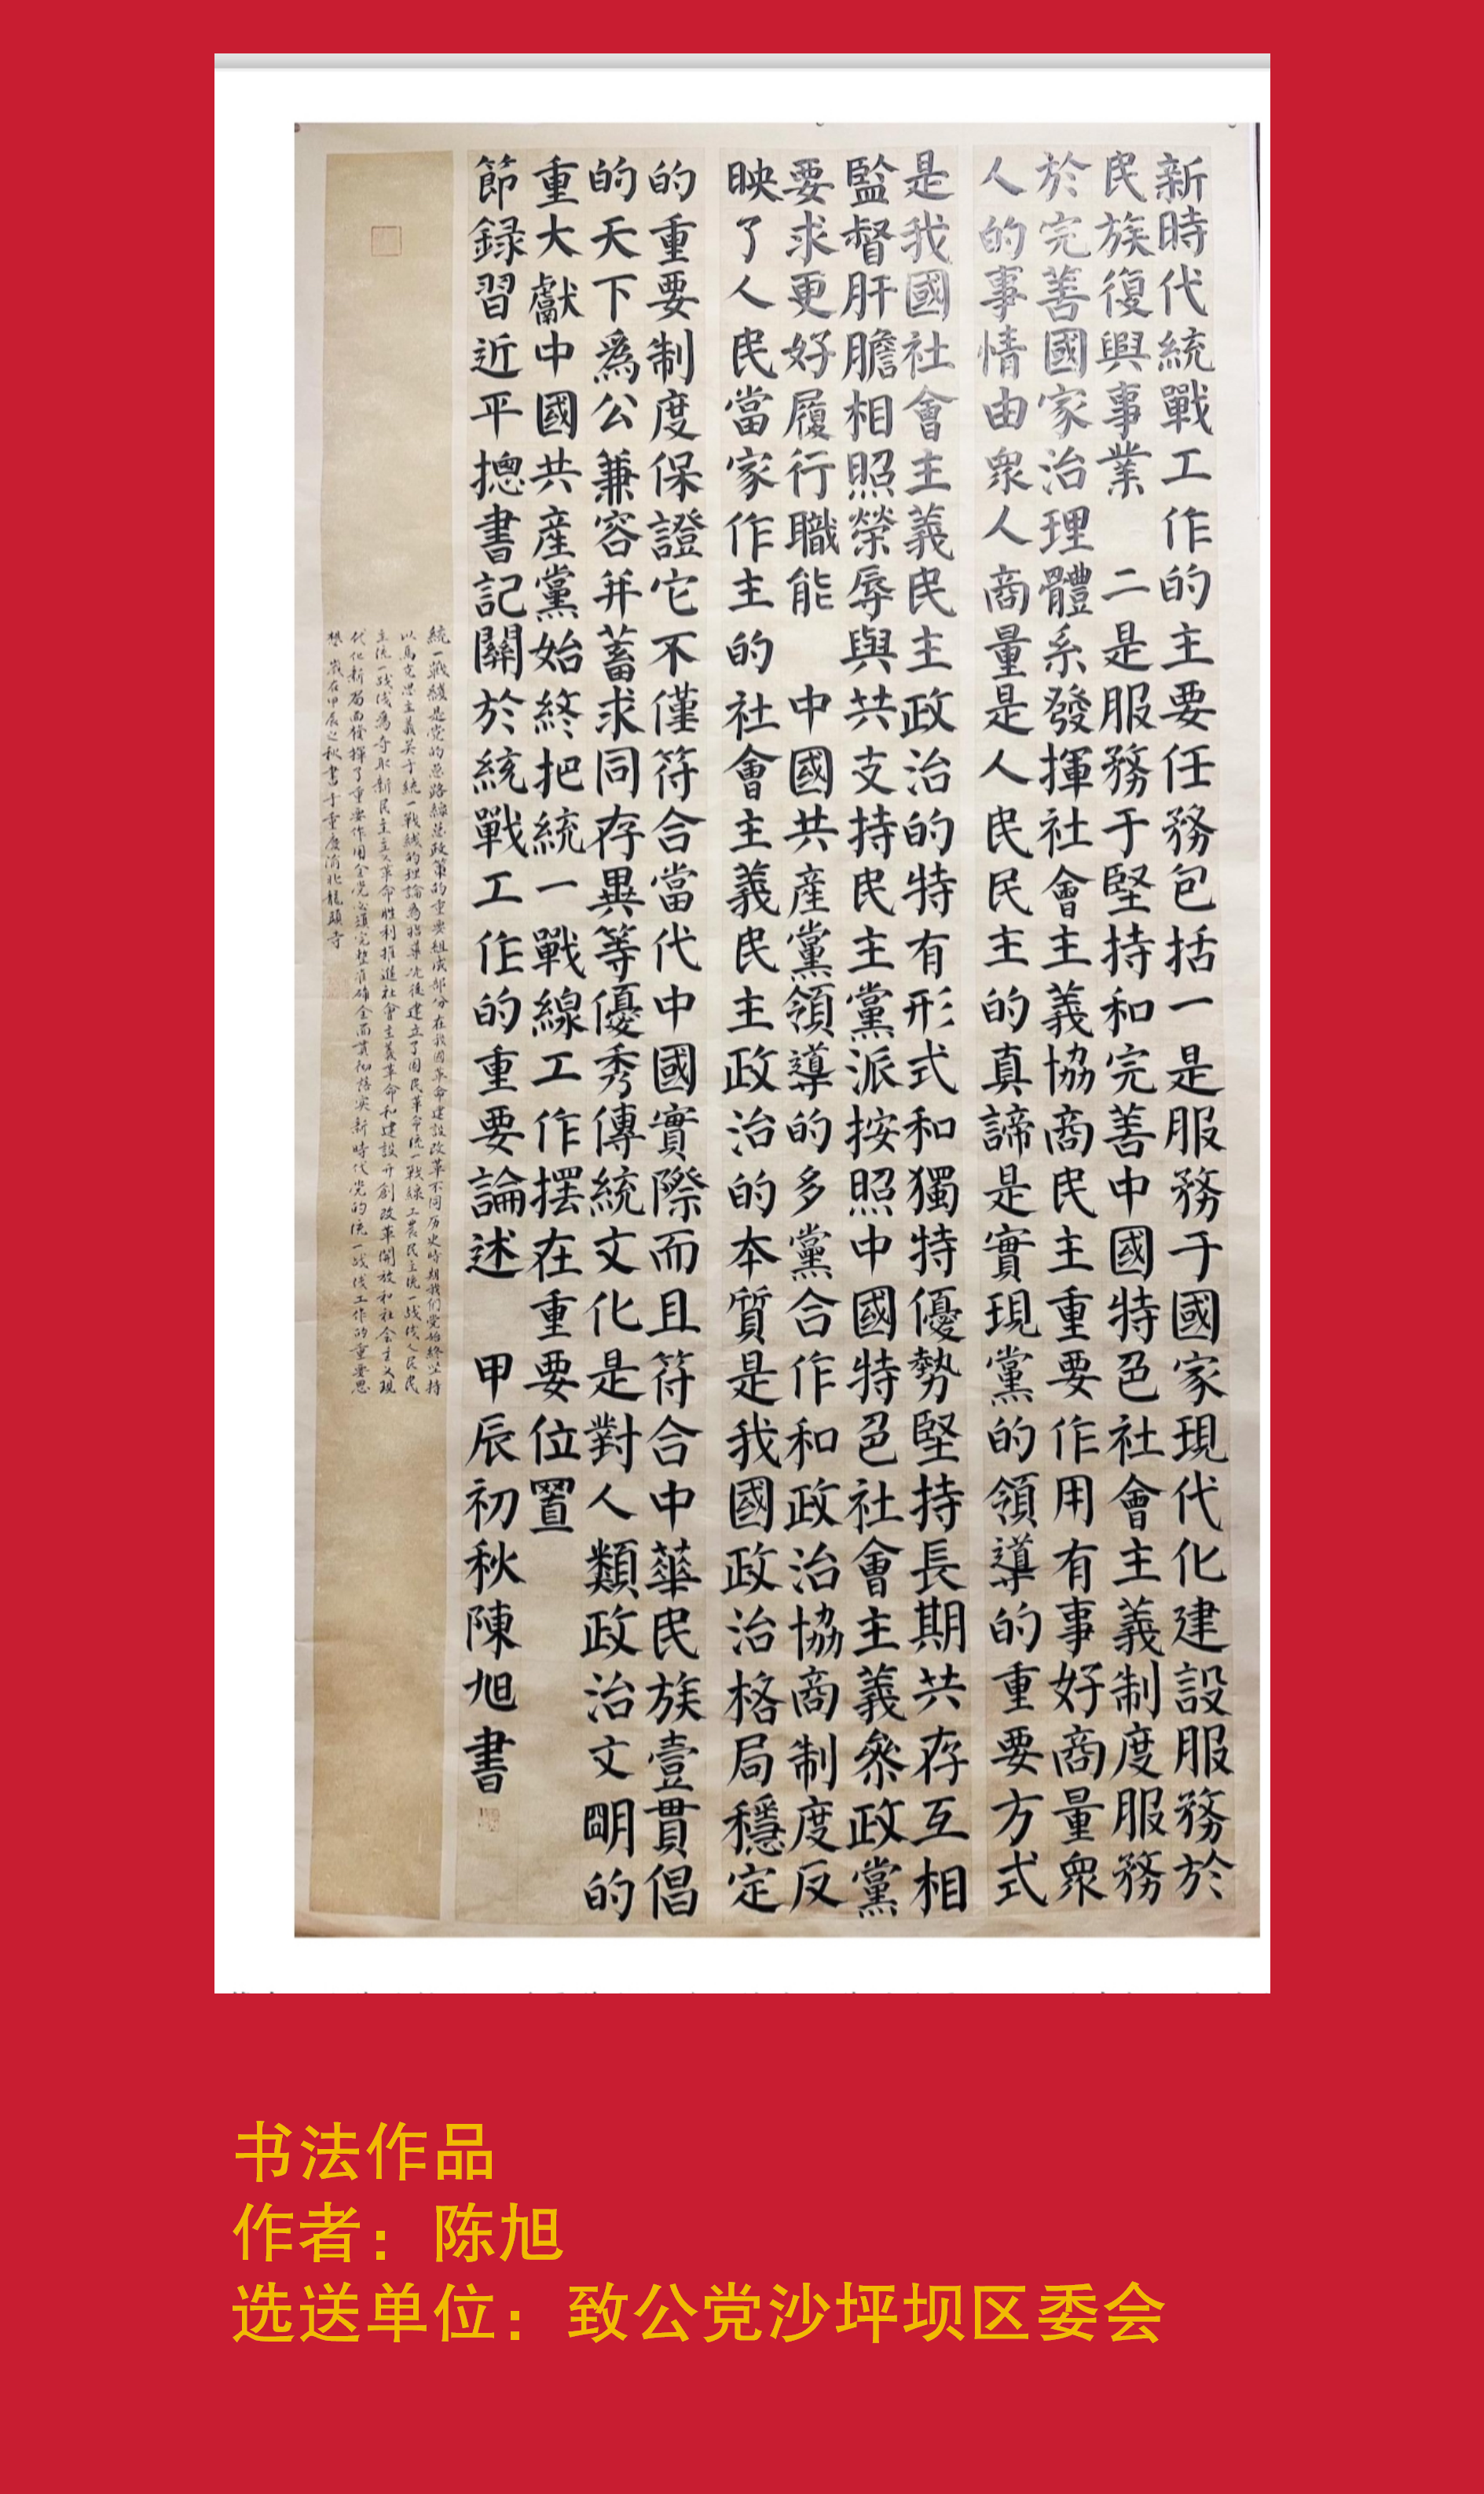 新時代統戰工作的主要任務包括一是服務于國家現代化建設服務於
民族復興事業 二是服務于堅持和完善中國特色社會主義制度服務
於完善國家治理體系發揮社會主義協商民主重要作用有事好商量衆
人的事情由衆人商量是人民民主的真諦是實現黨的領導的重要方式
是我國社會主義民主政治的特有形式和獨特優勢堅持長期共存互相
監督肝膽相照榮辱與共支持民主黨派按照中國特色社會主義參政黨
要求更好履行職能 中國共産黨領導的多黨合作和政治協商制度反
映了人民當家作主的社會主義民主政治的本質是我國政治格局穩定
的重要制度保證它不僅符合當代中國實際而且符合中華民族壹貫倡
的天下爲公兼容并蓄求同存異等優秀傳統文化是對人類政治文明的
重大獻中國共産黨始終把統一戰線工作擺在重要位置
節録習近平摠書記關於統戰工作的重要論述 甲辰初秋陳旭書
統一戰綫是党的总路線总政策的重要組成部分在我國革命建設改革不同历史時期我们党始終坚持
以馬克思主義关于統一戰綫的理論為指導先後建立了国民革命统一戰線工農民主统一战线人民民
主统一战线為夺取新民主主义革命胜利推進社會主義革命和建設开創改革開放和社会主义現
代化新局面發揮了重要作用全党必須完整准确全面貫彻落实新時代党的统一战线工作的重要思
想 歲在甲辰之秋書于重庆渝北龍頭寺
书法作品
作者：陈旭
选送单位：致公党沙坪坝区委会